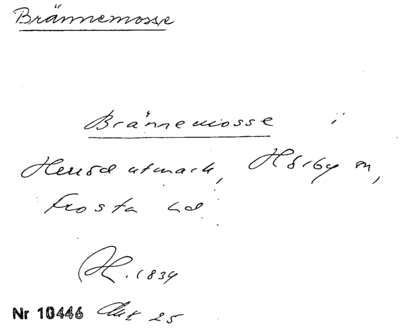 Brännemosse
Brännemosse i
utmark, Hörby sn,
Frosta hd
H. 1834
Nr 10446 Akt 25